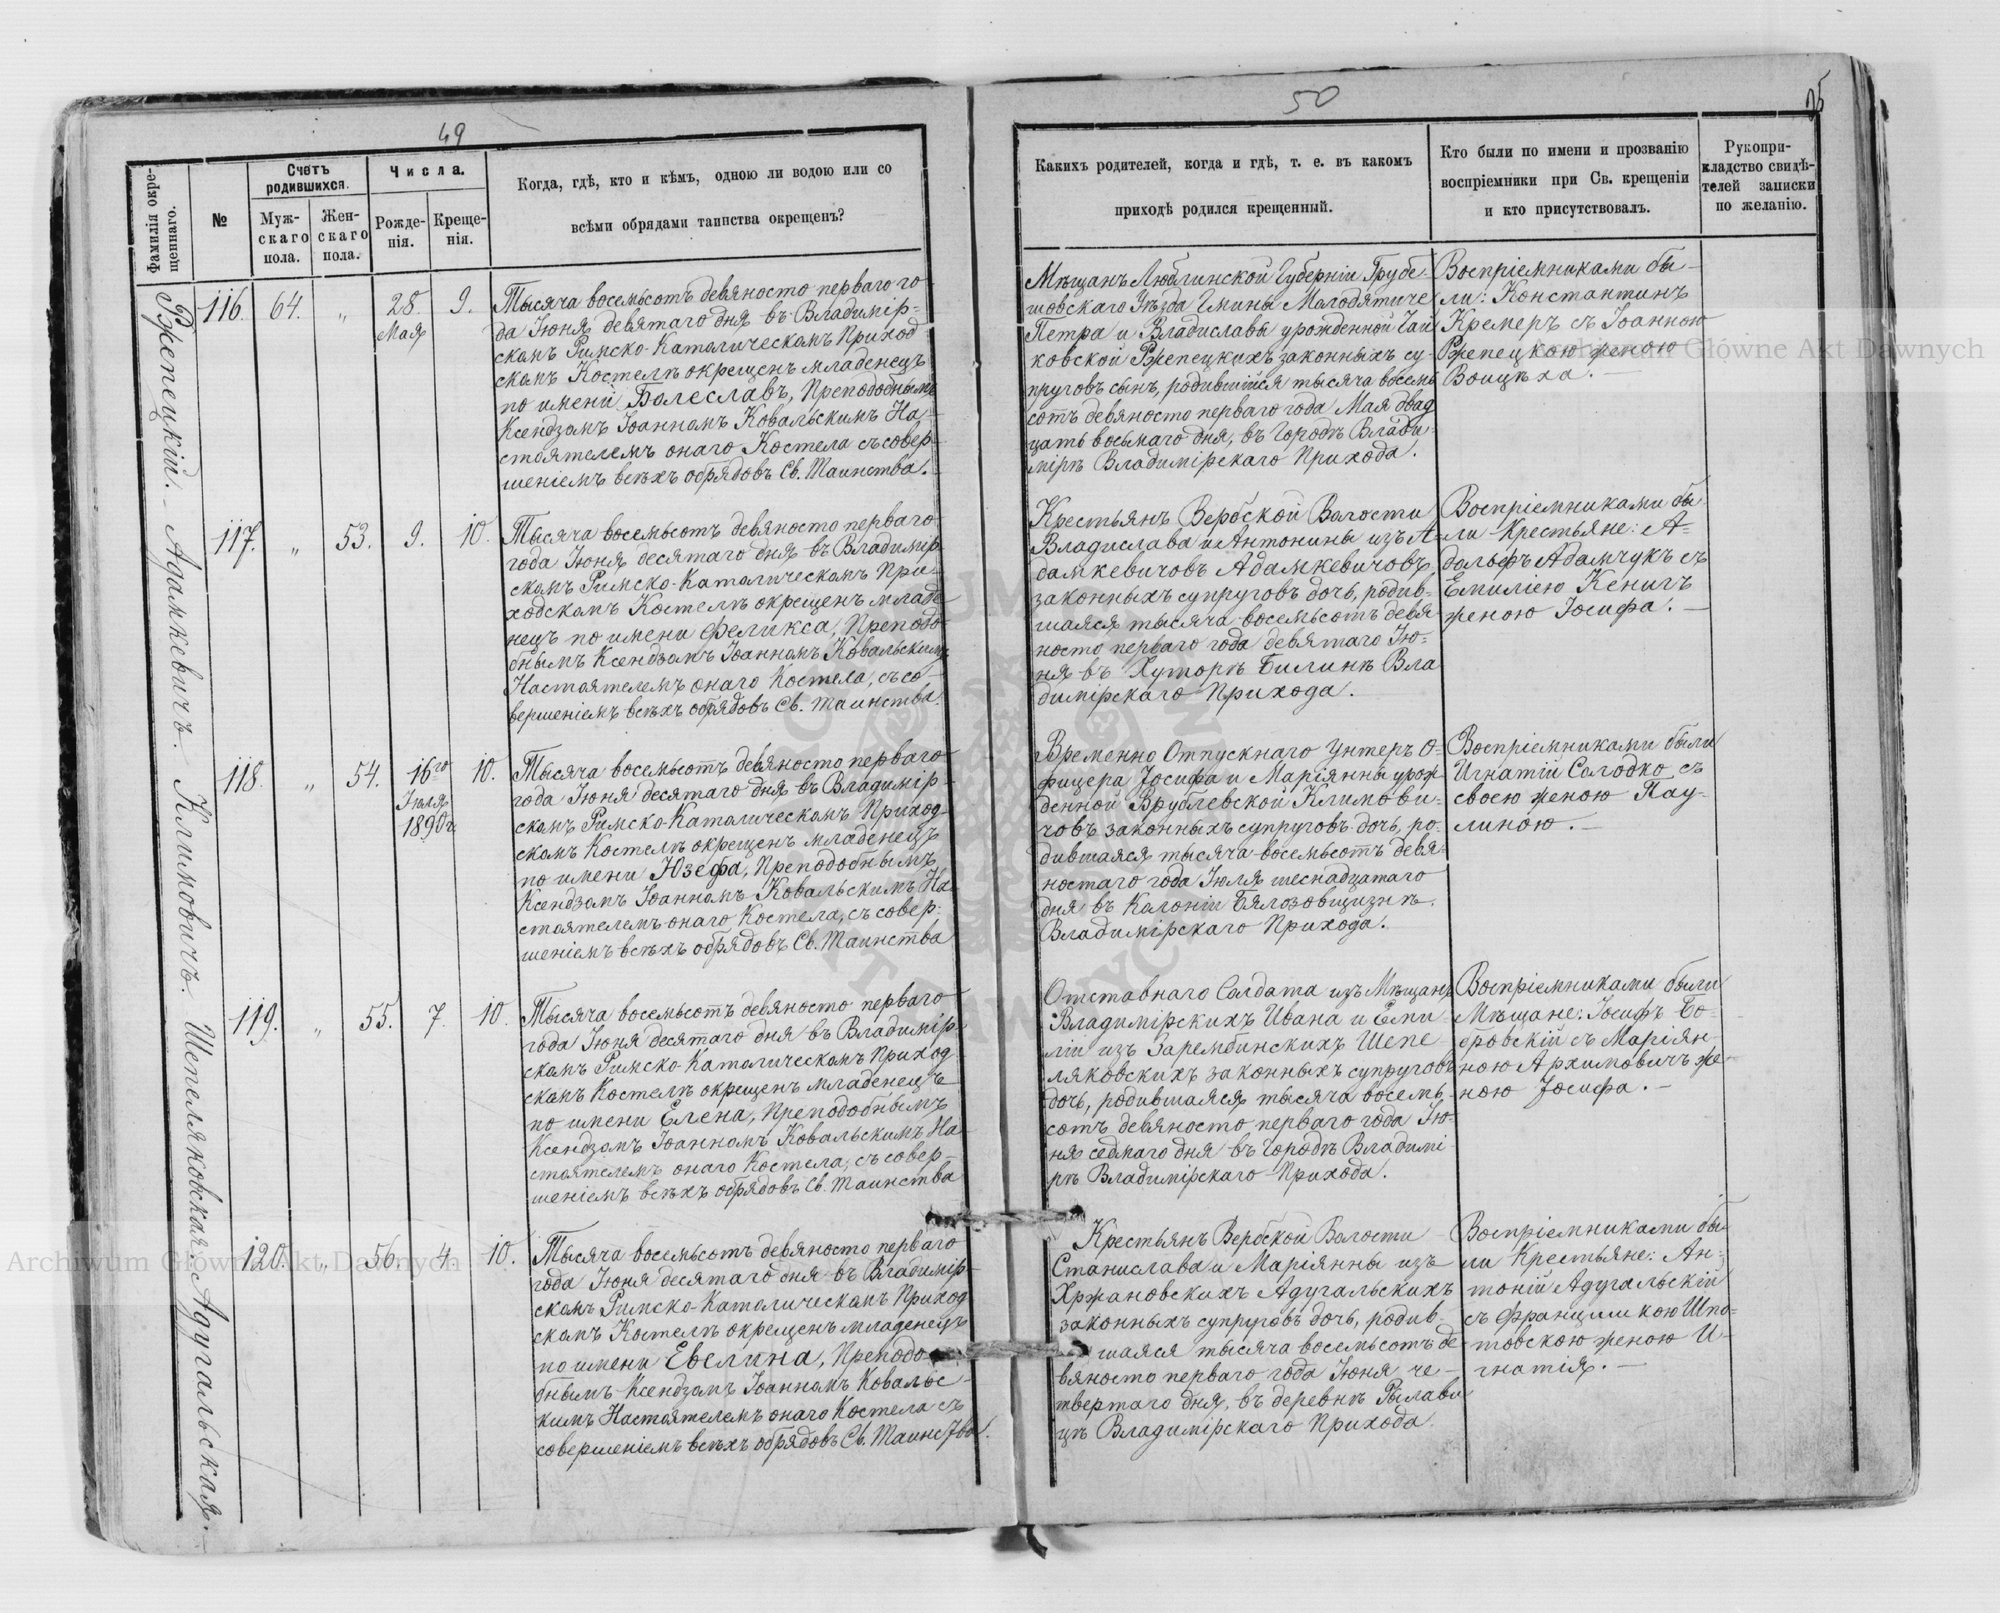 49
Фамилія окре-
щеннаго.
№
Счетъ
родившихся.
Муж-
скаго
пола.
Жен-
скаго
пола.
Числа.
Рожде-
нія.
Креще-
нія.
Когда, гдѣ, кто и кѣмъ, одною ли водою или со
всѣми обрядами таинства окрещенъ?
Ржепецкій. – Адамкевичъ. Климовичъ. Шепеляковская. Адугальская.
116. 64. „ 28. 9.
Мая
Тысяча восемьсотъ девяносто перваго го-
да Іюня девятаго дня въ Владимір-
скомъ Римско-Католическомъ Приход-
скомъ Костелѣ окрещенъ младенецъ
по имени Болеславъ, Преподобнымъ
Ксендзомъ Іоанномъ Ковальскимъ На-
стоятелемъ онаго Костела съ совер-
шеніемъ всѣхъ обрядовъ Св. Таинства.
117. „ 53. 9. 10.
Тысяча восемьсотъ девяносто перваго
года Іюня десятаго дня въ Владимір-
скомъ Римско-Католическомъ При-
ходскомъ Костелѣ окрещенъ младе-
нецъ по имени Феликса, Преподо-
бнымъ Ксендзомъ Іоанномъ Ковальскимъ
Настоятелемъ онаго Костела, съ со-
вершеніемъ всѣхъ обрядовъ Св. Таинства.
118. „ 54. 16го 10.
Іюля
1890 г.
Тысяча восемьсотъ девяносто перваго
года Іюня десятаго дня въ Владимір-
скомъ Римско-Католическомъ Приход-
скомъ Костелѣ окрещенъ младенецъ
по имени Юзефа, Преподобнымъ
Ксендзомъ Іоанномъ Ковальскимъ На-
стоятелемъ онаго Костела, съ совер-
шеніемъ всѣхъ обрядовъ Св. Таинства
119. „ 55. 7. 10.
Тысяча восемьсотъ девяносто перваго
года Іюня десятаго дня въ Владимір-
скомъ Римско-Католическомъ Приход-
скомъ Костелѣ окрещенъ младенецъ
по имени Елена, Преподобнымъ
Ксендзомъ Іоанномъ Ковальскимъ На-
стоятелемъ онаго Костела, съ совер-
шеніемъ всѣхъ обрядовъ Св. Таинства
120. „ 56. 4. 10.
Тысяча восемьсотъ девяносто перваго
года Іюня десятаго дня въ Владимір-
скомъ Римско-Католическомъ Приход-
скомъ Костелѣ окрещенъ младенецъ
по имени Евелина, Преподо-
бнымъ Ксендзомъ Іоанномъ Ковальс-
кимъ Настоятелемъ онаго Костела съ
совершеніемъ всѣхъ обрядовъ Св. Таинства.
50
Какихъ родителей, когда и гдѣ, т. е. въ какомъ
приходѣ родился крещенный.
Кто были по имени и прозванію
воспріемники при Св. крещеніи
и кто присутствовалъ.
Рукопри-
кладство свидѣ-
телей записки
по желанію.
Мѣщанъ Люблинской Губерніи Грубе-
шовскаго Уѣзда Гмины Молодятиче
Петра и Владиславы урожденной Чай
ковской Ржепецкихъ законныхъ су-
пруговъ сынъ, родившійся тысяча восемь
сотъ девяносто перваго года Мая двад
цать восьмаго дня, въ Городѣ Влади-
мірѣ Владимірскаго Прихода.
Воспріемниками бы-
ли: Константинъ
Кремеръ съ Іоанною
Ржепецкою женою
Войцѣха. –
Крестьянъ Вербской Волости
Владислава и Антонины изъ А-
дамкевичовъ Адамкевичовъ
законныхъ супруговъ дочь, родив-
шаяся тысяча восемьсотъ девя-
носто перваго года девятаго Ію-
ня въ Хуторѣ Билинѣ Вла
димірскаго Прихода.
Воспріемниками бы-
ли Крестьяне: А-
дольфъ Адамчукъ съ
Емиліею Кенигъ
женою Іосифа. –
Временно Отпускнаго Унтеръ О-
фицера Іосифа и Маріянны урож-
денной Врублевской Климови-
човъ законныхъ супруговъ дочь, ро-
дившаяся тысяча восемьсотъ девя-
ностаго года Іюля шеснадцатаго
дня въ Колоніи Бялозовщизнѣ
Владимірскаго Прихода.
Воспріемниками были
Игнатій Солодко съ
своею женою Пау-
линою. –
Отставнаго Солдата изъ Мѣщанъ
Владимірскихъ Ивана и Еми-
ліи изъ Зарембинскихъ Шепе-
ляковскихъ законныхъ супруговъ
дочь, родившаяся тысяча восемь-
сотъ девяносто перваго года Ію-
ня седмаго дня въ Городѣ Владимі
рѣ Владимірскаго Прихода.
Воспріемниками были
Мѣщане: Іосифъ Бо-
бровскій съ Маріян-
ною Архимовичъ же-
ною Іосифа. –
Крестьянъ Вербской Волости
Станислава и Маріянны изъ
Хржановскихъ Адугальскихъ
законныхъ супруговъ дочь, родив-
шаяся тысяча восемьсотъ де
вяносто перваго года Іюня че-
твертаго дня, въ деревнѣ Рылави
цѣ Владимірскаго Прихода.
Воспріемниками бы-
ли Крестьяне: Ан-
тоній Адугальскій
съ Францишкою Шпо-
товскою женою И-
гнатія. –
Archiwum Główne Akt Dawnych
Archiwum Główne Akt Dawnych